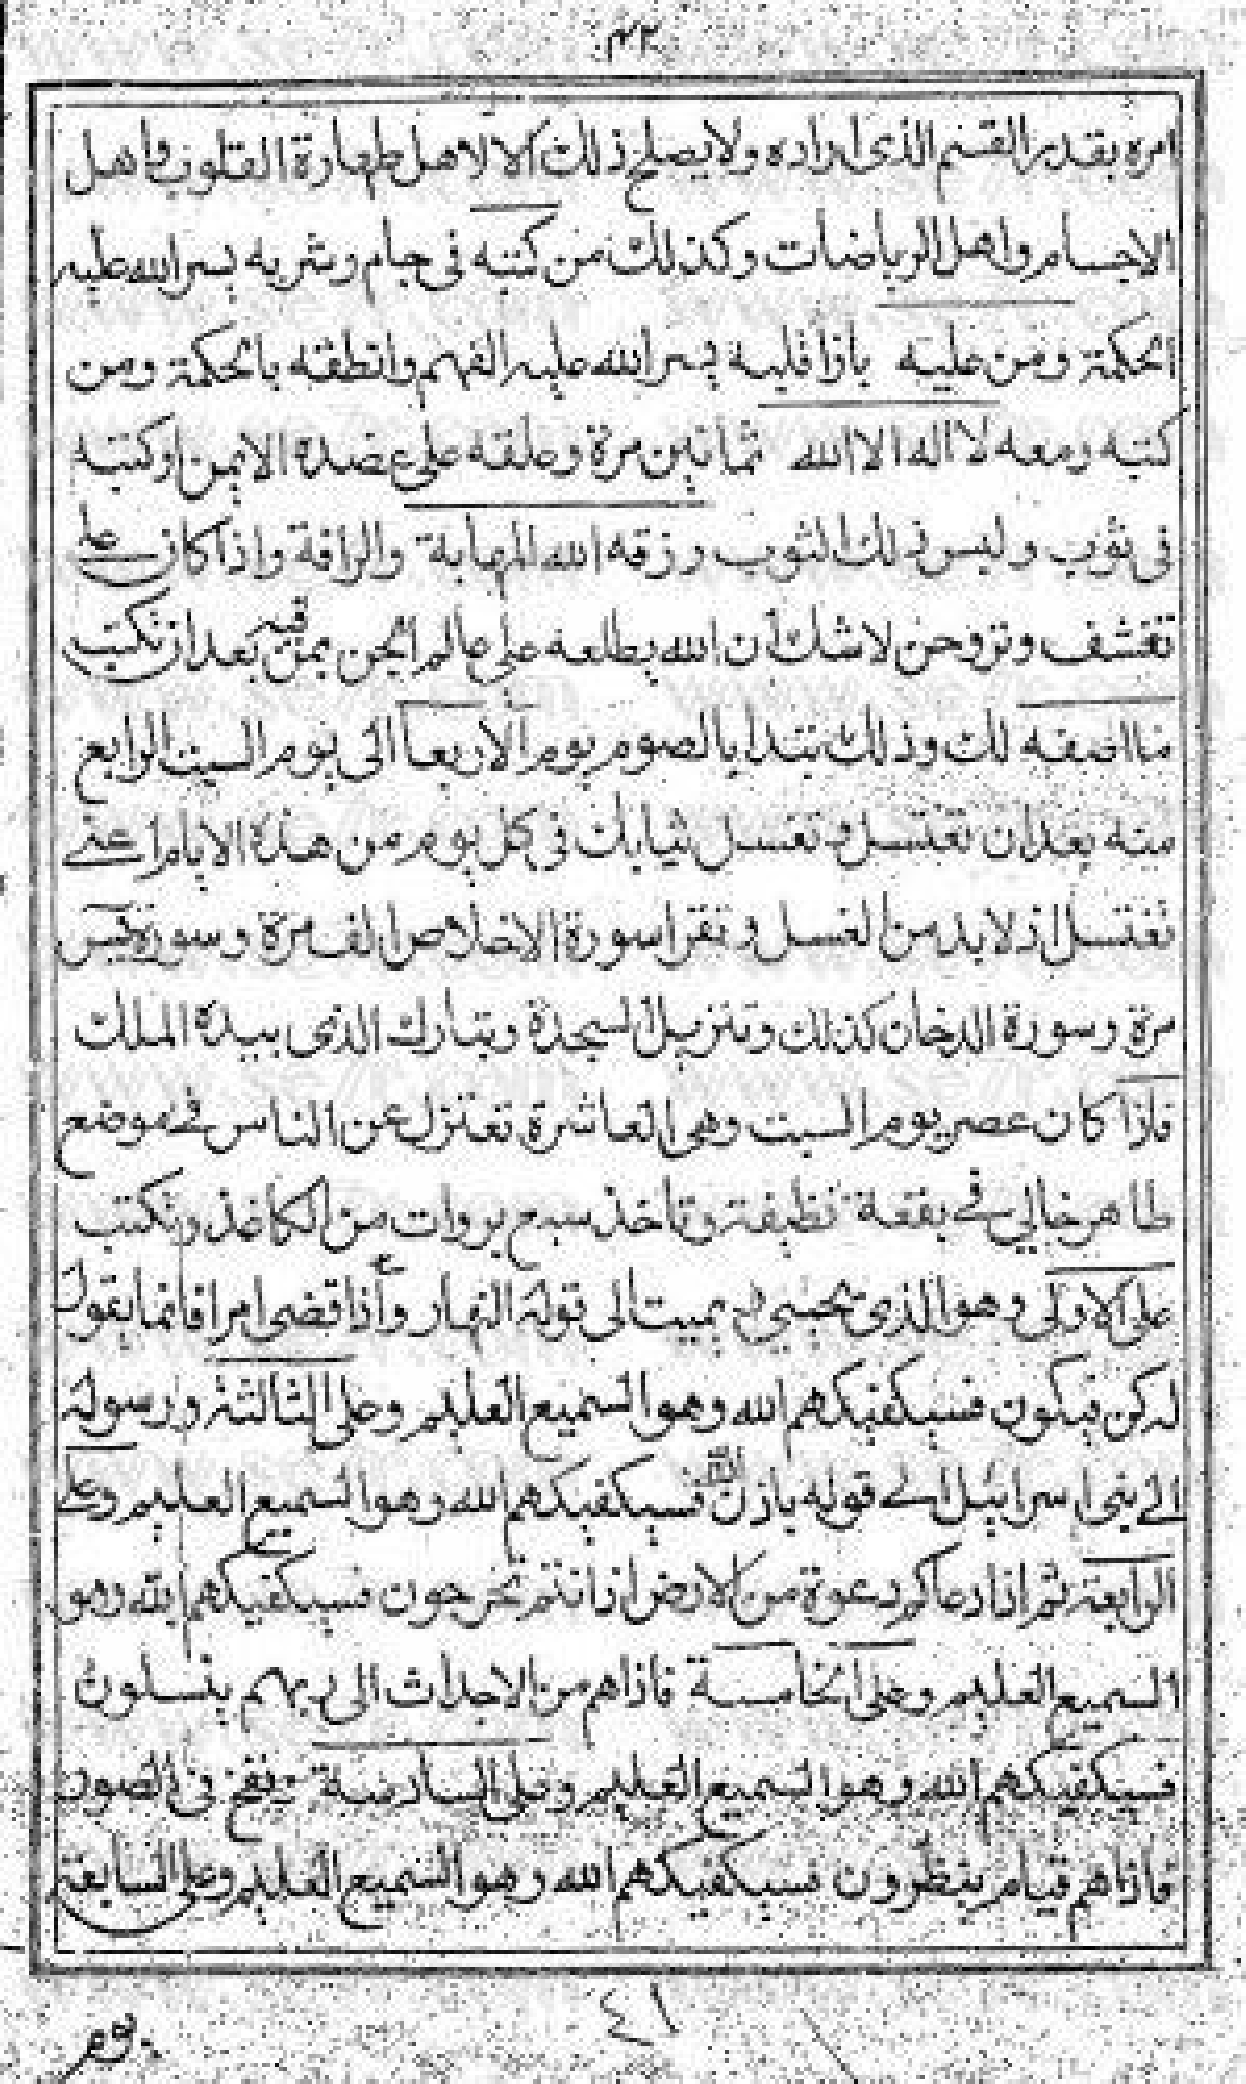 امره بقدر القسم الذى اراده ولا يصلح ذلك الا لاهل طهارة القلوب واهل
الاجسام واهل الرياضات وكذلك من كتبه فى جام وشربه يسر الله عليه
الحكمة ومن عليه بازا قلبه يسر الله عليه الفهم وانطقه بالحكمة ومن
كتبه ومعه لا اله الا الله ثمانين مرة وعلقه على عضده الايمن او كتبه
فى ثوب ولبس ذلك الثوب رزقه الله المهابة والرافة واذا كان على
تقشف وتروحن لا شك أن الله يطلعه على عالم الجن بعد ان تكتب
ما اصفه لك وذلك تبتدا بالصوم يوم الاربعا الى يوم السبت الرابع
منه بعد ان تغتسل وتغسل ثيابك فى كل يوم من هذه الايام اعنى
تغتسل اذ لابد من الغسل وتقرا سورة الاخلاص الف مرة وسورة يس
مرة وسورة الدخان كذلك وتنزيل السجدة وتبارك الذى بيده الملك
فاذا كان عصر يوم السبت وهى العاشرة تعتزل عن الناس فى موضع
طاهر خالى فى بقعة نظيفة وتاخذ سبع بروات من الكاغذ وتكتب
على الاولى وهو الذى يحيى ويميت الى قوله النهار واذا قضى امرا فانما يقول
له كن فيكون فسيكفيكهم الله وهو السميع العليم وعلى الثالثة ورسوله
الى بنى اسرائيل الى قوله باذن الله فسيكفيكهم الله وهو السميع العليم وعلى
الرابعة ثم اذا دعاكم دعوة من الارض اذا انتم تخرجون فسيكفيكهم الله وهو
السميع العليم وعلى الخامسة فاذا هم من الاجداث الى ربهم ينسلون
فسيكفيكهم الله وهو السميع العليم وعلى السادسة ونفخ فى الصور
فاذا هم قيام ينظرون فسيكفيكهم الله وهو السميع العليم وعلى السابعة
٤١
يوم